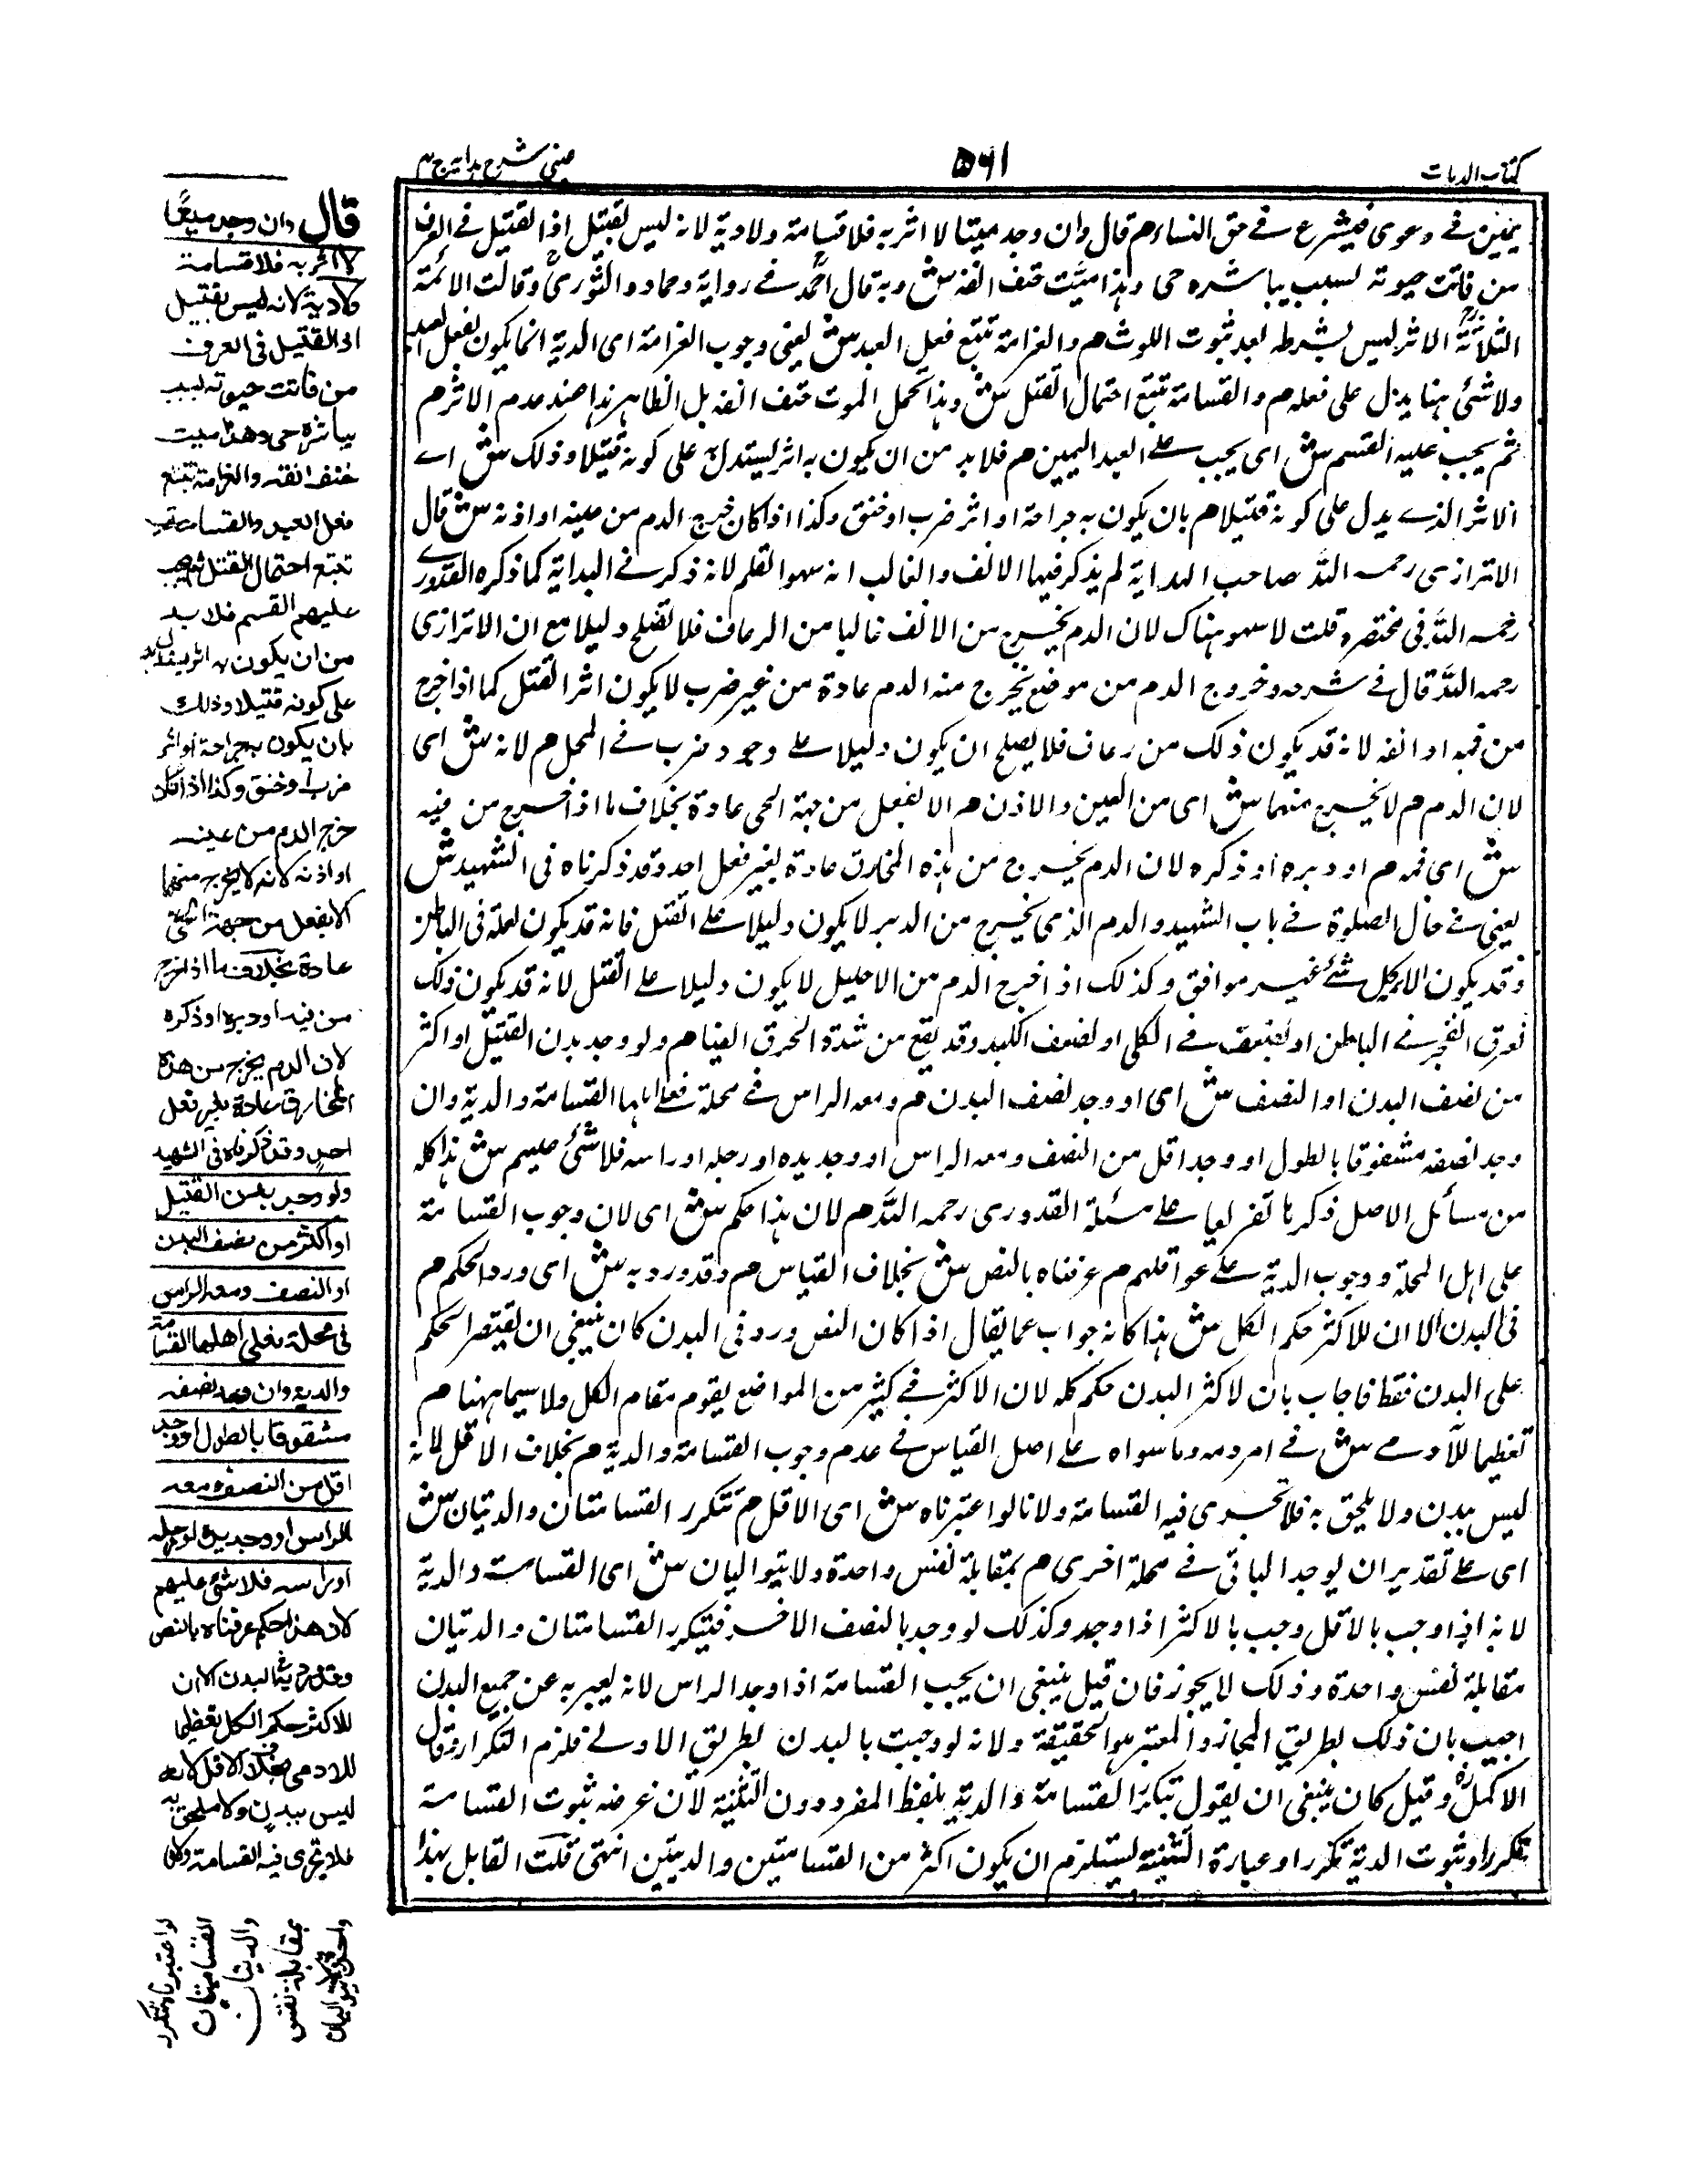 كتاب الديات
٥٦١
عينى شرح هدايه ج ٣
يمين فے دعوى فيشرع فے حق النساء م قال وان وجد ميتا لا اثر به فلا قسامة ولا دية لانه ليس بقتيل اذ القتيل فے العرف
من فاتت حيوته بسبب يباشره حى وهذا ميت حتف انفه ش وبه قال احمد فے رواية وحماد والثورى وقالت الائمة
الثلاثة الاثر ليس بشرط بعد ثبوت اللوث م والغرامة تتبع فعل العبد ش يعنى وجوب الغرامة اى الدية انما يكون بفعل العبد
ولا شئ هنا يدل على فعله م والقسامة تتبع احتمال القتل ش وهذا يحمل الموت حتف انفه بل الظاهر هذا عند عدم الاثر م
ثم يجب عليه القسم ش اى يجب علے العبد اليمين م فلا بد من ان يكون به اثر يستدل به على كونه قتيلا وذلك ش اے
الاثر الذے يدل على كونه قتيلا م بان يكون به جراحة او اثر ضرب او خنق وكذا اذا كان خرج الدم من عينه او اذنه ش قال
الاترازى رحمه الله صاحب الهداية لم يذكر فيها الانف والغالب انه سهو القلم لانه ذكر فے البداية كما ذكره القدورے
رحمه الله فى مختصره قلت لا سهو هناك لان الدم يخرج من الانف غالبا من الرعاف فلا تصلح دليلا مع ان الاترازى
رحمه الله قال فے شرحه وخروج الدم من موضع يخرج منه الدم عادة من غير ضرب لا يكون اثر القتل كما اذا خرج
من فمه او انفه لانه قد يكون ذلك من رعاف فلا يصلح ان يكون دليلا علے وجود ضرب فے المحل م لانه ش اى
لان الدم م لا يخرج منهما ش اى من العين والاذن م الا بفعل من جهة الحى عادة بخلاف ما اذا خرج من فيه
ش اى فمه م او دبره او ذكره لان الدم يخرج من هذه المخارق عادة بغير فعل احد وقد ذكرناه فى الشهيد ش
يعنى فے حال الصلوة فے باب الشهيد والدم الذى يخرج من الدبر لا يكون دليلا علے القتل فانه قد يكون لعلة فى الباطن
وقد يكون لاكل شئ غير موافق وكذلك اذا خرج الدم من الاحليل لا يكون دليلا علے القتل لانه قد يكون ذلك
لعرق انفجر فے الباطن او لضعف فے الكلى او لضعف الكبد وقد يقع من شدة الحرق ايضا م ولو وجد بدن القتيل او اكثر
من نصف البدن او النصف ش اى او وجد نصف البدن م ومعه الراس فے محلة فعلے اهلها القسامة والدية وان
وجد نصفه مشقوقا بالطول او وجد اقل من النصف ومعه الراس او وجد يده او رجله او راسه فلا شئ عليهم ش هذا كله
من مسائل الاصل ذكرها تفريعا علے مسئلة القدورى رحمه الله م لان هذا حكم ش اى لان وجوب القسامة
على اهل المحلة ووجوب الدية علے عواقلهم م عرفناه بالنص ش بخلاف القياس م وقد ورد به ش اى ورد الحكم م
فى البدن الا ان للاكثر حكم الكل ش هذا كانه جواب عما يقال اذا كان النص ورد فى البدن كان ينبغى ان يقتصر الحكم
على البدن فقط فاجاب بان لاكثر البدن حكم كله لان الاكثر فے كثير من المواضع يقوم مقام الكل ولا سيما ههنا م
تعظيما للآدمے ش فے امر دمه وما سواه علے اصل القياس فے عدم وجوب القسامة والدية م بخلاف الاقل لانه
ليس ببدن ولا يلحق به فلا تجرى فيه القسامة ولانا لو اعتبرناه ش اى الاقل م تتكرر القسامتان والديتان ش
اى علے تقدير ان يوجد الباقى فے محلة اخرى م بمقابلة نفس واحدة ولا يتواليان ش اى القسامة والدية
لانه اذا وجب بالاقل وجب بالاكثر اذا وجد وكذلك لو وجد بالنصف الاخر فتتكرر القسامتان والديتان
مقابلة نفس واحدة وذلك لا يجوز فان قيل ينبغى ان يجب القسامة اذا وجد الراس لانه يعبر به عن جميع البدن
اجيب بان ذلك بطريق المجاز والمعتبر هو الحقيقة ولانه لو وجبت بالبدن بطريق الاولے فلزم التكرار وقال
الاكمل ره وقيل كان ينبغى ان يقول تتكرر القسامة والدية بلفظ المفرد دون التثنية لان غرضه ثبوت القسامة
تكررا وثبوت الدية تكررا وعبارة التثنية ليستلزم ان يكون اكثر من القسامتين والديتين انتهى قلت القايل بهذا
قال وان وجد ميتا
لا اثر به فلا قسامة
ولا دية لانه ليس بقتيل
اذ القتيل فى العرف
من فاتت حيوته بسبب
يباشره حى وهذا ميت
حتف انفه والغرامة تتبع
فعل العبد والقسامة
تتبع احتمال القتل ثم يجب
عليهم القسم فلا بد
من ان يكون به اثر يستدل به
على كونه قتيلا وذلك
بان يكون به جراحة او اثر
ضرب او خنق وكذا اذا كان
خرج الدم من عينه
او اذنه لانه لا يخرج منهما
الا بفعل من جهة الحى
عادة بخلاف ما اذا خرج
من فيه او دبره او ذكره
لان الدم يخرج من هذه
المخارق عادة بغير فعل
احد وقد ذكرناه فى الشهيد
ولو وجد بدن القتيل
او اكثر من نصف البدن
او النصف ومعه الراس
فى محلة فعلى اهلها القسامة
والدية وان وجد نصفه
مشقوقا بالطول او وجد
اقل من النصف ومعه
الراس او وجد يده او رجله
او راسه فلا شئ عليهم
لان هذا حكم عرفناه بالنص
وقد ورد به فى البدن الا ان
للاكثر حكم الكل تعظيما
للادمى بخلاف الاقل لانه
ليس ببدن ولا ملحق به
فلا تجرى فيه القسامة ولانا
لو اعتبرناه تتكرر
القسامتان
والديتان
بمقابلة نفس
واحدة ولا يتواليان